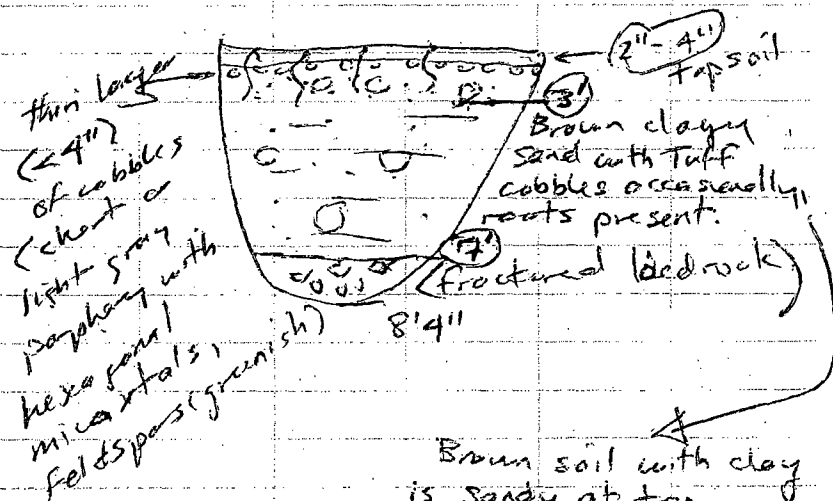 thin layer
(<4")
of cobbles
(chert or
light gray
porphory with
hexagonal
mica xtals,
feldspars (greenish)
2"-4"
topsoil
3'
Brown clayey
Sand with Tuff
cobbles occasionally,
roots present.
7'
(fractured bedrock)
8'4"
Brown soil with clay
is sandy at top